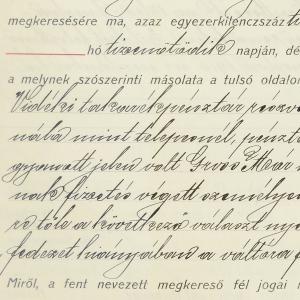 megkeresésére ma, azaz egyezerkilenczszáz ti
hó tizenötödik napján, dé
a melynek szószerinti másolata a tulsó oldalon
Vidéki takarékpénztár részvé
nába mint telepesnél, pénztá
jelen volt Gross Mear
nak fizetés végett személyese
re tőle a következő választ nye
fedezet hiányában a váltóra f
Miről, a fent nevezett megkereső fél jogai m